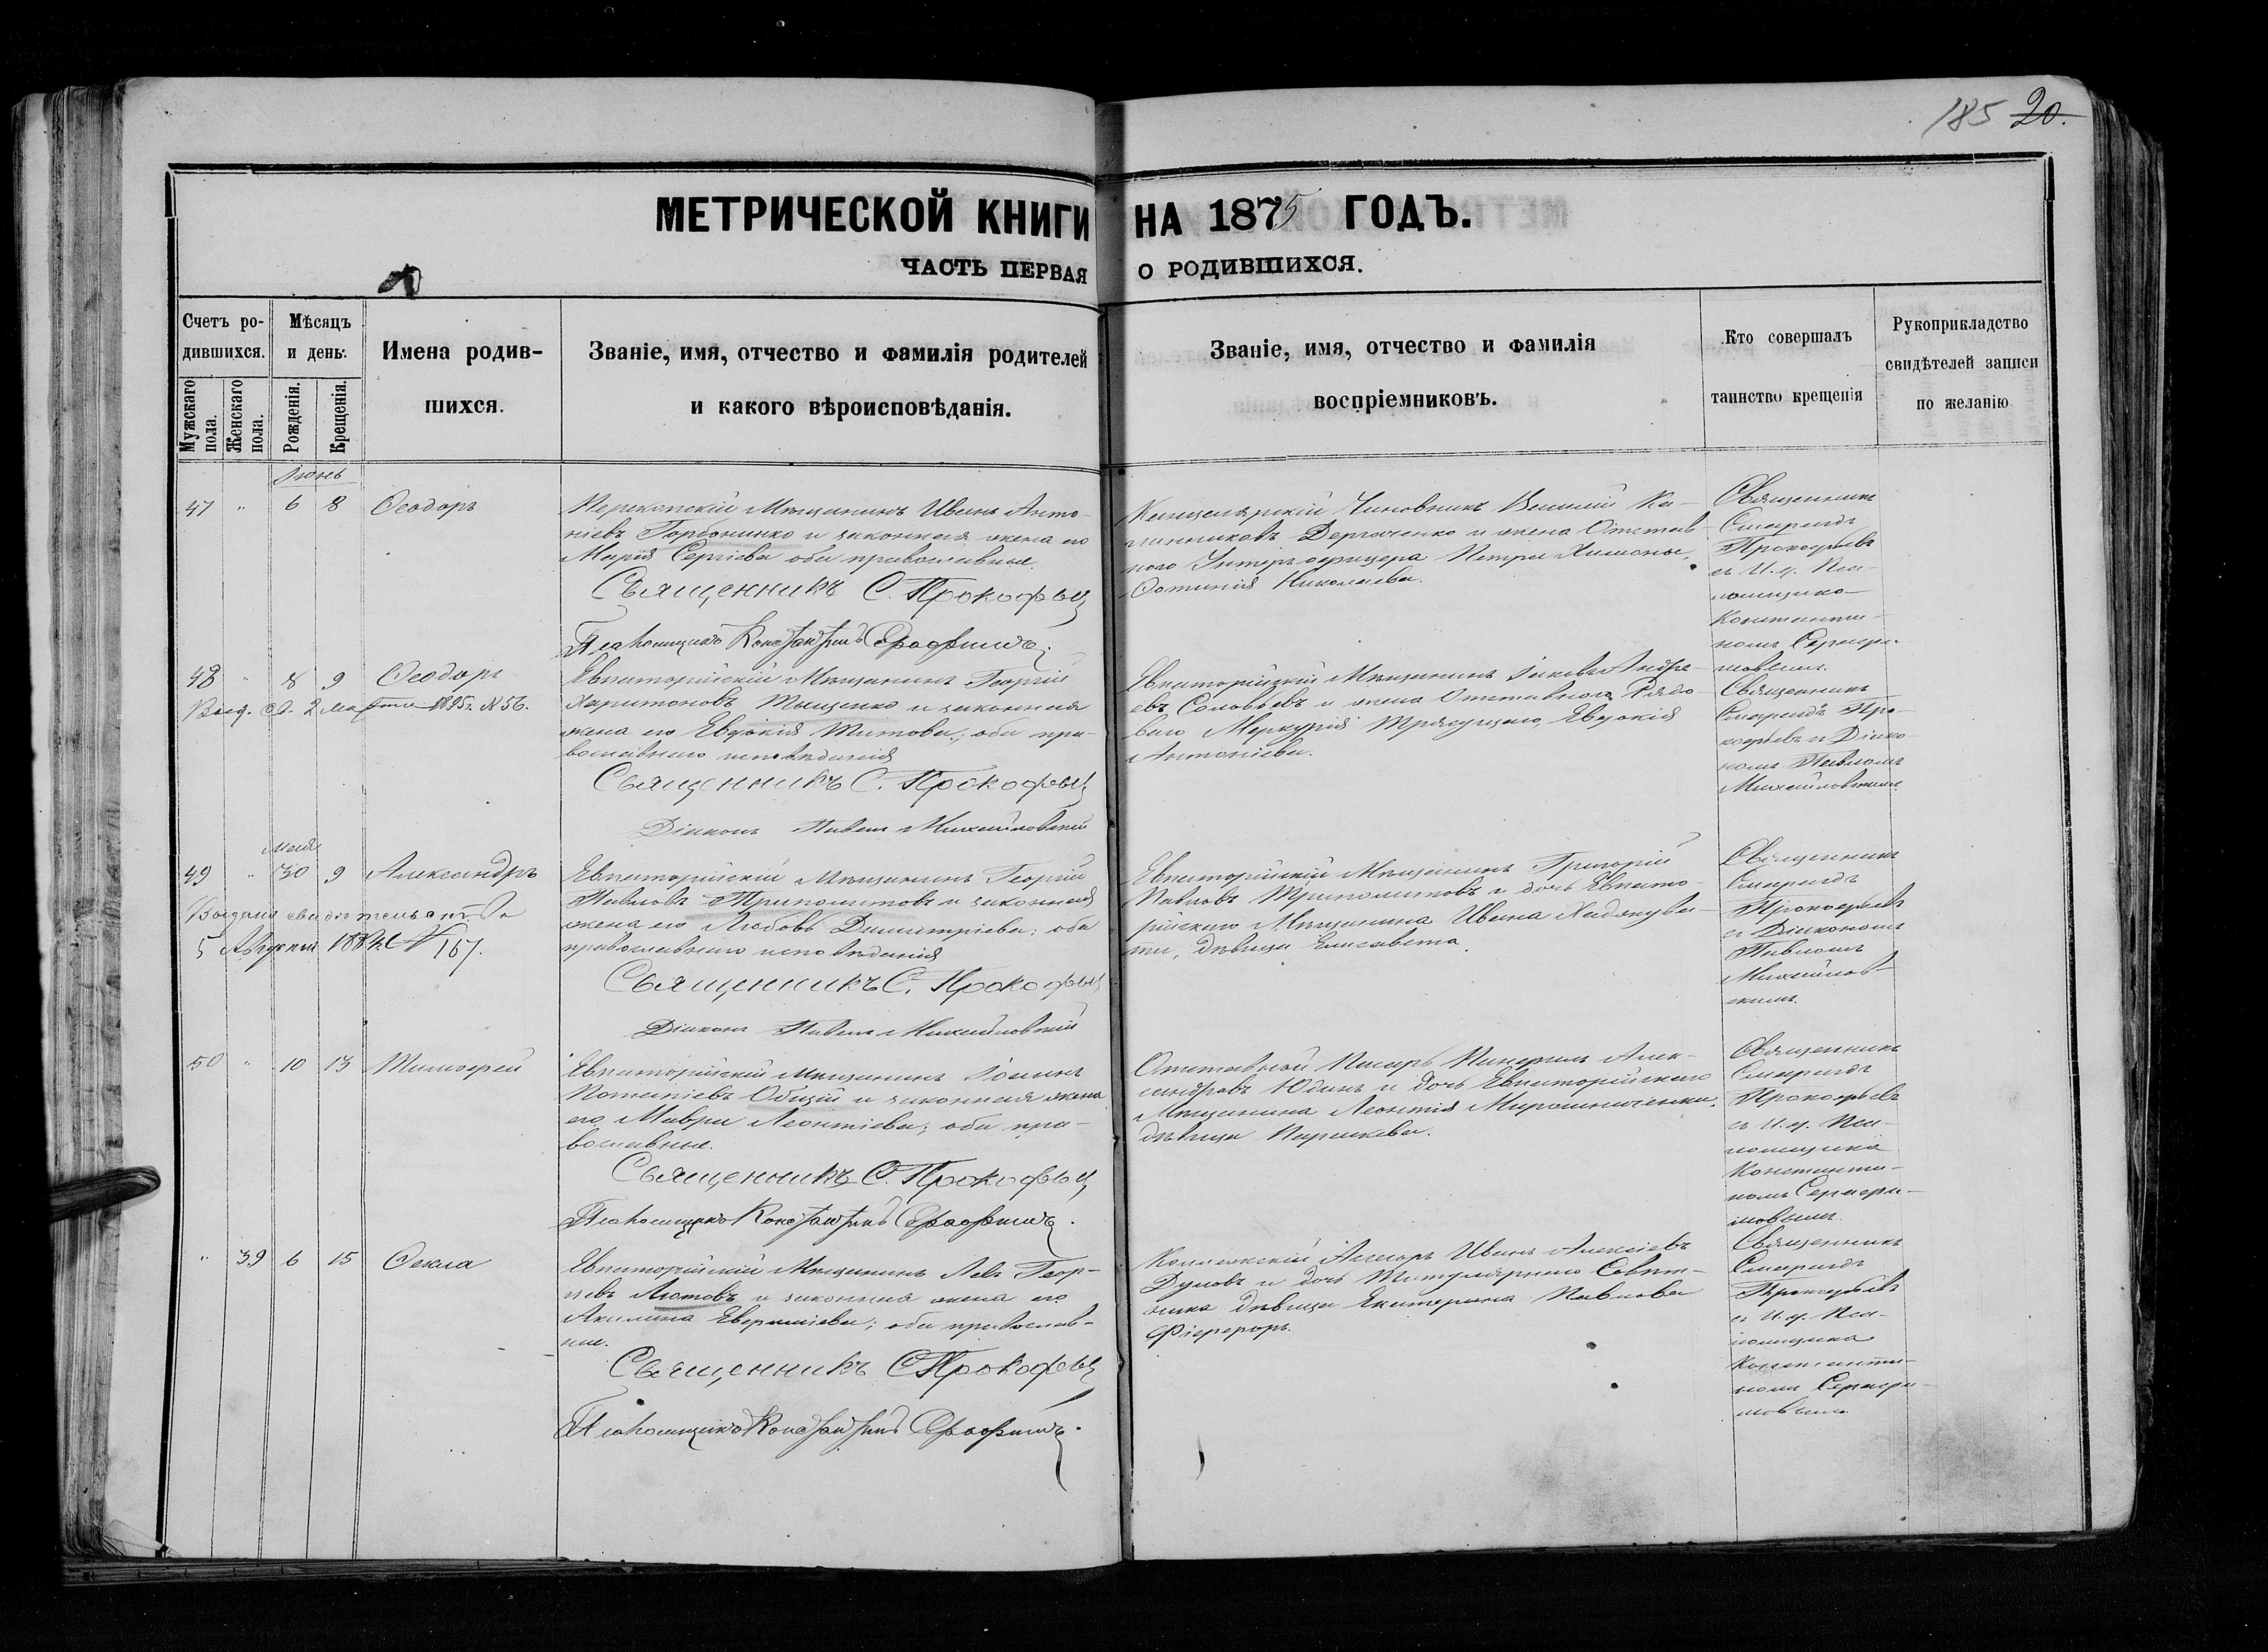 185 20.
МЕТРИЧЕСКОЙ КНИГИ НА 1875 ГОДЪ.
ЧАСТЬ ПЕРВАЯ О РОДИВШИХСЯ.
Счетъ ро-
дившихся.
Мужскаго пола.
Женскаго пола.
Мѣсяцъ
и день.
Рожденія.
Крещенія.
Имена родив-
шихся.
Званіе, имя, отчество и фамилія родителей
и какого вѣроисповѣданія.
Званіе, имя, отчество и фамилія
воспріемниковъ.
Кто совершалъ
таинство крещенія
Рукоприкладство
свидѣтелей записи
по желанію
Іюнь
47 " 6 8 Ѳеодоръ
Перекопскій Мѣщанинъ Иванъ Анто-
ніевъ Горбоненко и законная жена его
Марія Сергіева оба православные.
Священникъ С. Прокофьев
Псаломщикъ Константинъ Серафимовъ.
Канцелярскій Чиновникъ Василій Ка-
линниковъ Дергаченко и жена Отстав-
ного Унтеръ офицера Петра
Фотинія Николаева.
Священникъ
Смарагдъ
Прокофьевъ
съ И. д. Пса-
ломщика
Константи-
номъ Серафи-
мовымъ.
48 " 8 9 Ѳеодоръ
Выд. св. 2 марта 1895 г. № 56.
Евпаторійскій Мѣщанинъ Георгій
Харитоновъ Тищенко и законная
жена его Евдокія Титова, оба пра-
вославнаго исповѣданія
Священникъ С. Прокофьев
Діаконъ Павелъ Михайловскій
Евпаторійскій Мѣщанинъ Іаковъ Андре-
евъ Соловьевъ и жена Отставного Рядо-
ваго Меркурія Трясущаго, Евдокія
Антоніева.
Священникъ
Смарагдъ Про-
кофьевъ съ Діако-
номъ Павломъ
Михайловскимъ
мая
49 " 30 9 Александръ
Выдано свидѣтельство
5 Августа 188 г. № 167.
Евпаторійскій Мѣщанинъ Георгій
Павловъ Триполитовъ и законная
жена его Любовь Димитріева; оба
православнаго исповѣданія
Священникъ С. Прокофьев
Діаконъ Павелъ Михайловскій
Евпаторійскій Мѣщанинъ Григорій
Павловъ Триполитовъ и дочь Евпато-
рійскаго Мѣщанина Ивана
ти, дѣвица Елисавета.
Священникъ
Смарагдъ
Прокофьевъ
съ Діакономъ
Павломъ
Михайлов-
скимъ.
50 " 10 13 Тимофей
Евпаторійскій Мѣщанинъ Іоаннъ
Потапіевъ Общій и законная жена
его Мавра Леонтіева; оба пра-
вославные.
Священникъ С. Прокофьев
Псаломщикъ Константинъ Серафимовъ.
Отставной Писарь Панфилъ Алек-
сандровъ Юдинъ и дочь Евпаторійскаго
Мѣщанина Леонтія Мирошниченки,
дѣвица Параскева.
Священникъ
Смарагдъ
Прокофьевъ
съ И. д. Пса-
ломщика
Константи-
номъ Серафи-
мовымъ.
" 39 6 15 Ѳекла
Евпаторійскій Мѣщанинъ Левъ Геор-
гіевъ Лютовъ и законная жена его
Акилина Евфиміева; оба православ-
ные.
Священникъ С Прокофьев
Псаломщикъ Константинъ Серафимовъ.
Коллежскій Ассесоръ Иванъ Алексіевъ
Думовъ и дочь Титулярнаго Совѣт-
ника дѣвица Екатерина Павлова
Священникъ
Смарагдъ
Прокофьевъ
съ И. д. Пса-
ломщика
Константи-
номъ Серафи-
мовымъ